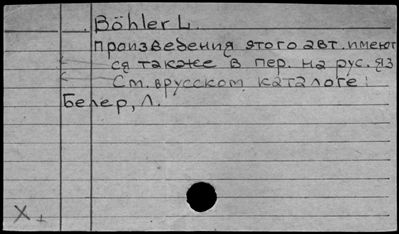 Böhler L.
Произведения этого авт. имеют
ся также в пер. на рус. яз
См. в русском каталоге:
Белер, Л.
X +